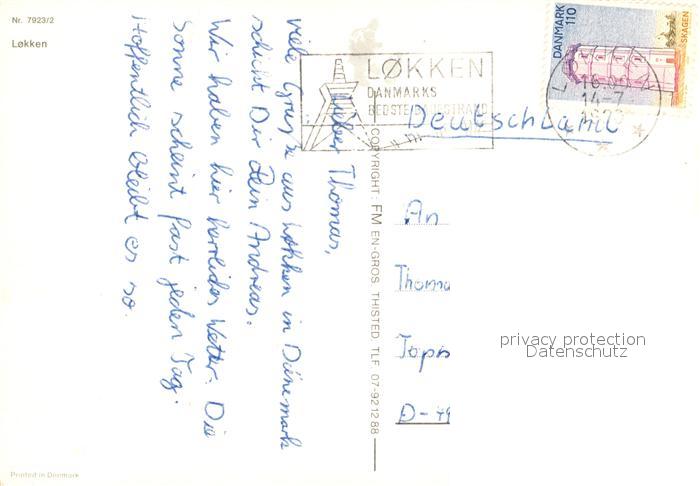 Nr. 7923/2
Løkken
Lieber Thomas,
viele Grüsse aus Løkken in Dänemark
schickt Dir Dein Andreas.
Wir haben hier herrliches Wetter. Die
Sonne scheint fast jeden Tag.
Hoffentlich bleibt es so.
Printed in Denmark
COPYRIGHT: FM EN-GROS THISTED TLF 07-92 12 88
LØKKEN
DANMARKS
BEDSTE
DANMARK
110
SKAGEN
14-7
Deutschland
An
Thoma
D-49
privacy protection
Datenschutz